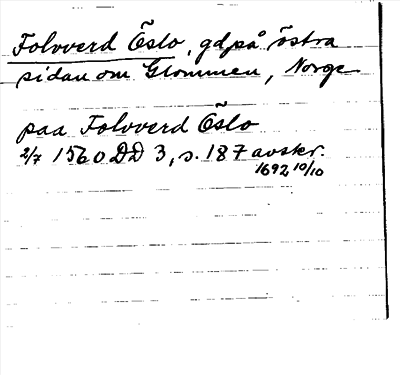 Folvverd Õslo, gd på östra
sidan om Glommen, Norge
paa Folvverd Õslo
2/7 1560 DD 3, s. 187 avskr.
1692 10/10